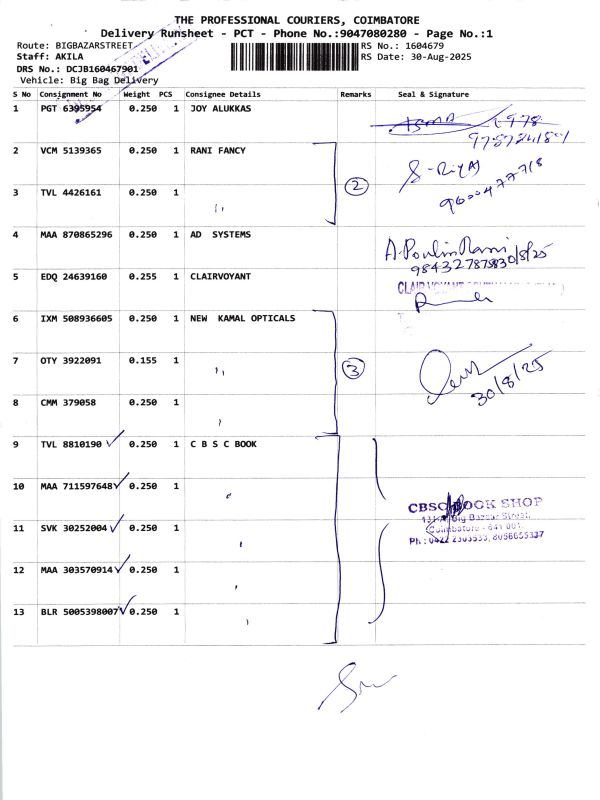 THE PROFESSIONAL COURIERS, COIMBATORE
Delivery Runsheet - PCT - Phone No.:9047080280 - Page No.:1
Route: BIGBAZARSTREET
RS No.: 1604679
Staff: AKILA
RS Date: 30-Aug-2025
DRS No.: DCJB160467901
Vehicle: Big Bag Delivery
S No Consignment No Weight PCS Consignee Details Remarks Seal & Signature
1 PGT 6395954 0.250 1 JOY ALUKKAS
2 VCM 5139365 0.250 1 RANI FANCY
3 TVL 4426161 0.250 1 2
4 MAA 870865296 0.250 1 AD SYSTEMS
30/8/25
5 EDQ 24639160 0.255 1 CLAIRVOYANT
6 IXM 508936605 0.250 1 NEW KAMAL OPTICALS
7 OTY 3922091 0.155 1 3
30/8/25
8 CMM 379058 0.250 1
9 TVL 8810190 0.250 1 C B S C BOOK
10 MAA 711597648 0.250 1
CBSC BOOK SHOP
Big Bazaar Street,
Coimbatore - 641 001.
11 SVK 30252004 0.250 1
12 MAA 303570914 0.250 1
13 BLR 5005398007 0.250 1